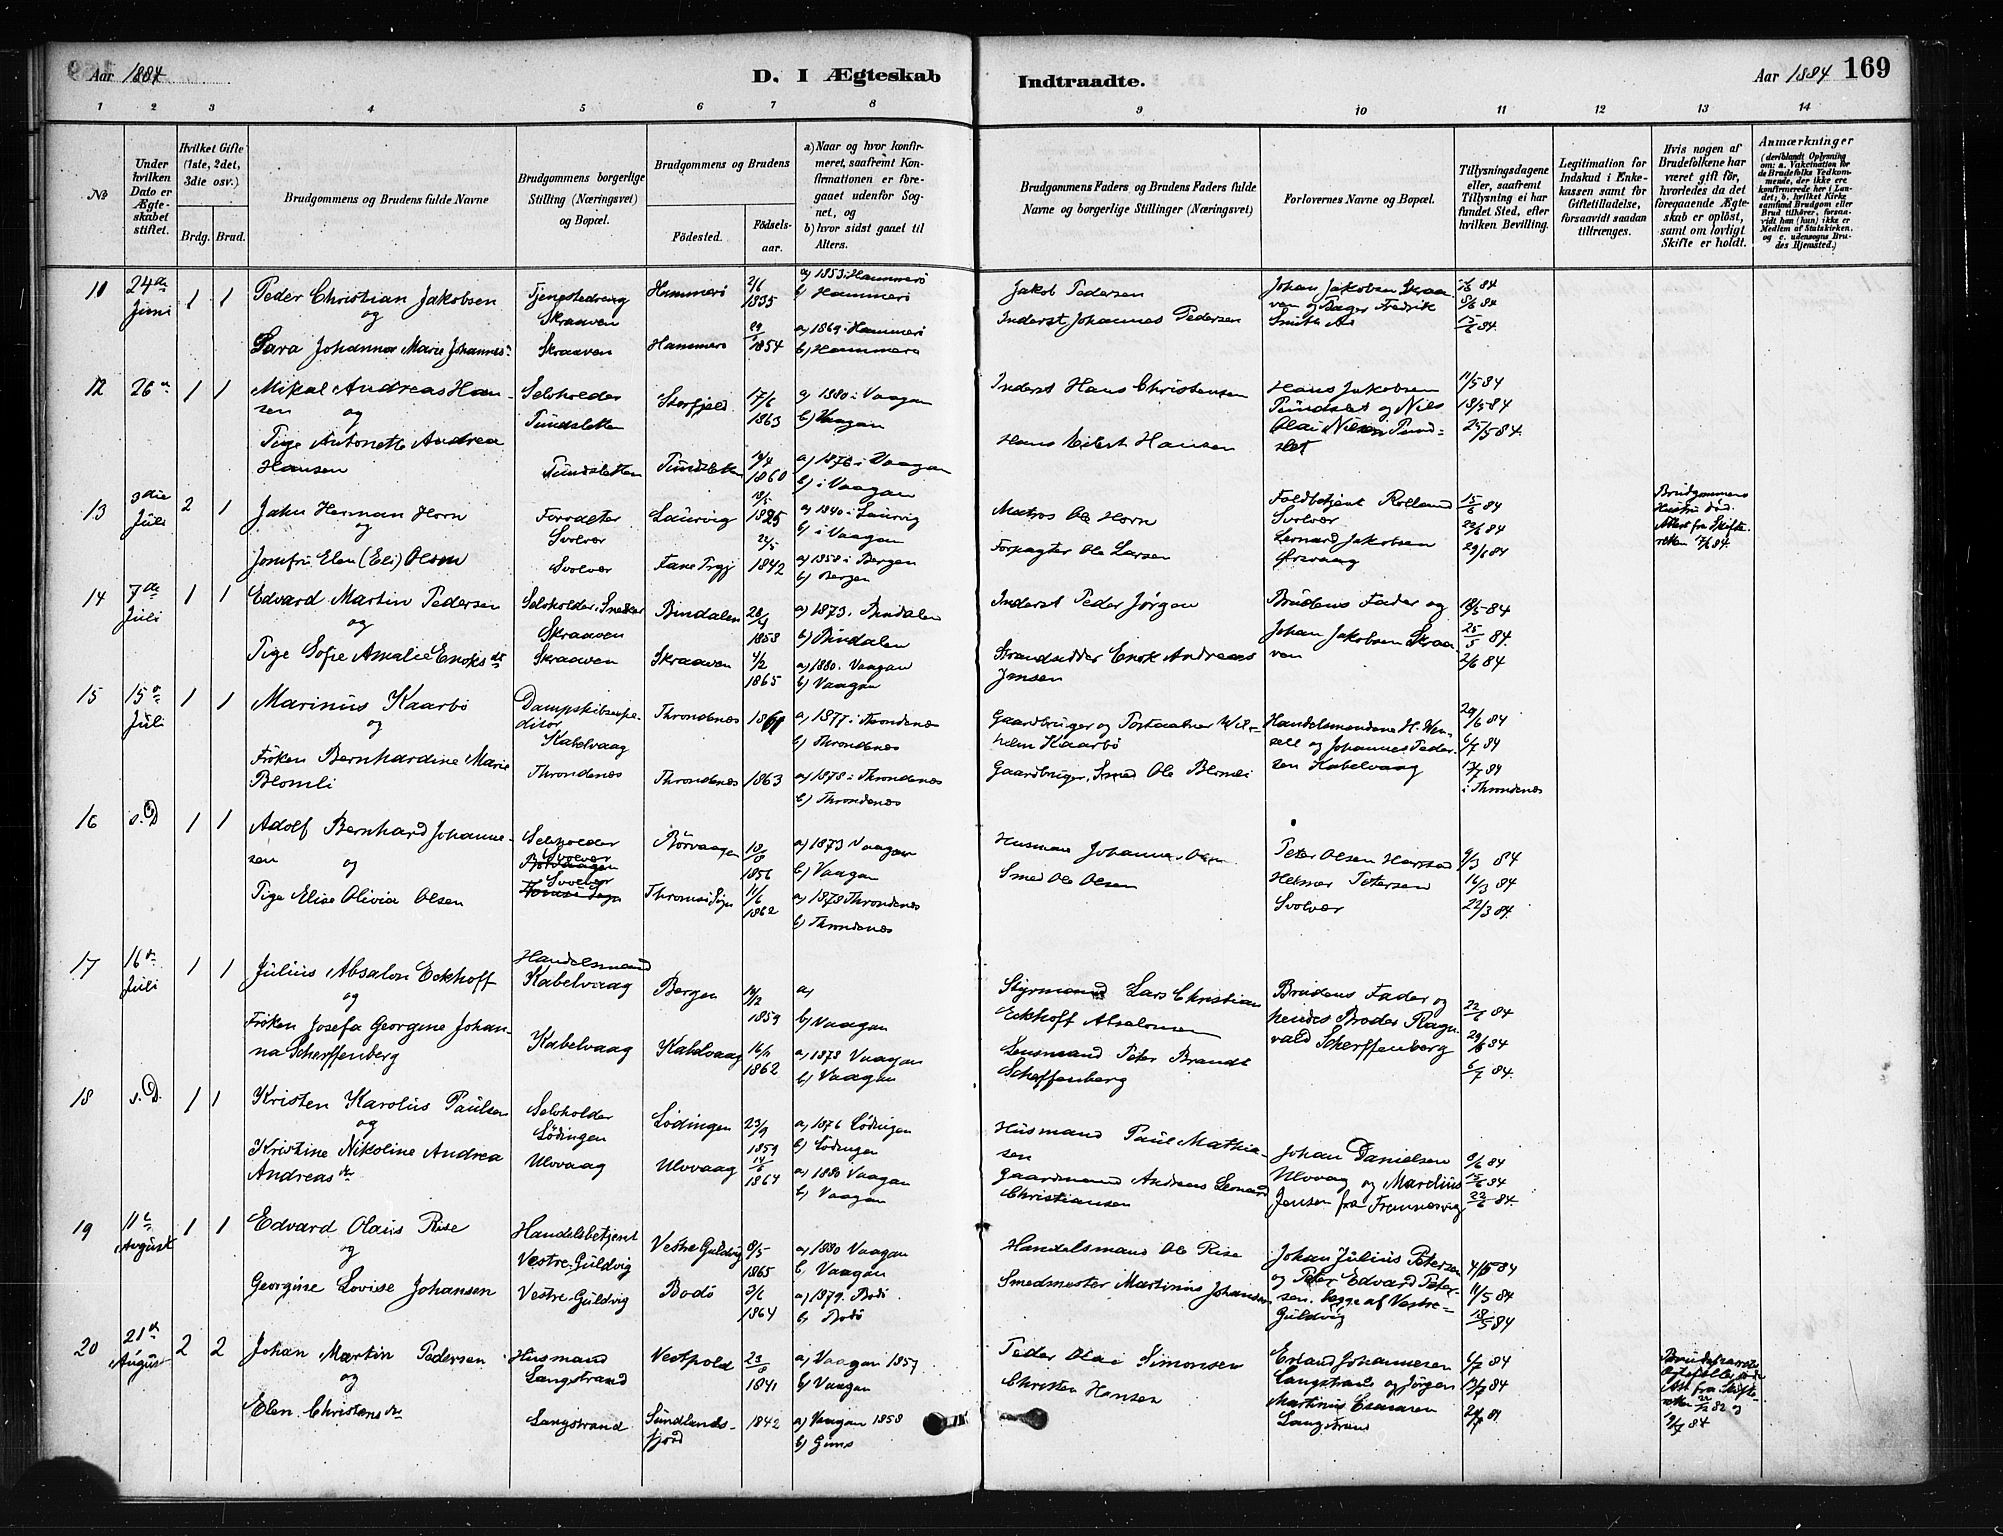 Aar 1884
D. I Ægteskab
Indtraadte.
Aar 1884 169
1 2 3 4 5 6 7 8 9 10 11 12 13 14
No
Under hvilken Dato er Ægteskabet stiftet.
Hvilket Gifte (1ste, 2det, 3die osv.)
Brdg. Brud.
Brudgommens og Brudens fulde Navne
Brudgommens borgerlige Stilling (Næringsvei) og Bopæl.
Brudgommens og Brudens
Fødested.
Fødselsaar.
a) Naar og hvor konfirmeret, saafremt Konfirmationen er foregaaet udenfor Sognet, og
b) hvor sidst gaaet til Alters.
Brudgommens Faders og Brudens Faders fulde Navne og borgerlige Stillinger (Næringsvei)
Forlovernes Navne og Bopæl.
Tillysningsdagene eller, saafremt Tillysning ei har fundet Sted, efter hvilken Bevilling.
Legitimation for Indskud i Enkekassen samt for Giftetilladelse, forsaavidt saadan tiltrænges.
Hvis nogen af Brudefolkene har været gift før, hvorledes da det foregaaende Ægteskab er opløst, samt om lovligt Skifte er holdt.
Anmærkninger
(deriblandt Oplysning om: a. Vakcination for de Brudefolks Vedkommende, der ikke ere konfirmerede her i Landet; b. hvilket Kirkesamfund Brudgom eller Brud tilhører, forsaavidt han (hun) ikke er Medlem af Statskirken, og c. udensogns Brudes Hjemsted.)
11 24de Juni 1 1
Peder Christian Jakobsen
og
Sara Johanna Marie Johannes
Tjenestedreng
Skraaven
Skraaven
Hammerö
Hammerö
2/6 1835
1854
a) 1853 i Hammerö
b) Hammerö
a) 1869 i Hammerö
b) Hammerö
Jakob Pedersen
Inderst Johannes Pedersen
Johan Jakobsen Skraaven og
Fredrik
8/6 84
15/6 84
12 26 1 1
Mikal Andreas Hansen
og
Pige Antonette Andrea
Hansen
Selvholder
Pundsletten
Pundsletten
Storfjeld
Pundsletten
17/6 1863
1860
a) 1880 i Vaagan
b) Vaagan
a) 1876 i Vaagan
b) i Vaagan
Inderst Hans Christensen
Hans Eilert Hansen
Hans Jakobsen
Pundslet og Nils
Olai Nilsen Pundslet
11/5 84
18/5 84
25/5 84
13 3die Juli 2 1
Jahn Herman Horn
og
Jomfru Elen (Eli) Olsen
Forvalter
Svolvær
Svolvær
Laurvig
Fane Prgj
1825
1842
a) 1840 i Laurvig
b) i Vaagan
a) 1858 i Bergen
b) Bergen
Matros Ole Horn
Forpagter Ole Larsen
Foldbetjent Rolland
Svolvær
Lenard Jakobsen
Ørsvaag
15/6 84
22/6 84
29/6 84
Brudgommens
Hustru død.
Attest fra Skifteretten 7/6 84.
14 7de Juli 1 1
Edvard Martin Pedersen
og
Pige Sofie Amalie Enoksdt
Selvholder, Snedker
Skraaven
Skraaven
Bindalen
Skraaven
28/4 1858
4/2 1865
a) 1873 i Bindalen
b) Bindalen
a) 1880 Vaagan
b) Vaagan
Inderst Peder Jörgen
Strandsidder Enok Andreas
Jensen
Brudens Fader og
Johan Jakobsen Skraaven
18/5 84
25/5 84
2/6 84
15 15de Juli 1 1
Marinus Kaarbö
og
Fröken Bernhardine Marie
Blomli
Dampskibsexpeditör
Kabelvaag
Throndenæs
Throndenæs
Throndenæs
1861
1863
a) 1877 i Throndenæs
b) Throndenæs
a) 1878 i Throndenæs
b) Throndenæs
Gaardbruger og Postaabner Wilhelm Kaarbö
Gaardbruger, Smed Ole Blomli
Handelsmændene H. Wensell og Johannes Pedersen Kabelvaag
29/6 84
6/7 84
13/7 84
i Throndenæs
16 s. D. 1 1
Adolf Bernhard Johannesen
og
Pige Elise Olivia Olsen
Selvholder
Svolvær
Svolvær
Börvaagen
18/8 1856
11/6 1862
a) 1873 Vaagan
b) Vaagan
a) 1878 Throndenæs
b) Throndenæs
Husmand Johannes Olsen
Smed Ole Olsen
Peter Olsen Harstad
Helmer Petersen
Svolvær
9/3 84
16/3 84
22/3 84
17 16de Juli 1 1
Julius Absalon Eckhoff
og
Fröken Josefa Georgine Johanna Scherffenberg
Handelsmand
Kabelvaag
Kabelvaag
Bergen
Kabelvaag
1859
1862
a)
b) Vaagan
a) 1878 Vaagan
b) Vaagan
Styrmand Lars Christian
Eckhoff Absalonsen
Lensmand Peter Brandt
Scheffenberg
Brudens Fader og
hendes Broder Ragnvald Scherffenberg
22/6 84
29/6 84
6/7 84
18 s. D. 1 1
Kristen Karolius Paulsen
og
Kristine Nikoline Andrea
Andreasdtr
Selvholder
Lödingen
Ulvvaag
Lödingen
Ulvvaag
23/9 1859
14/6 1864
a) 1876 Lödingen
b) Lödingen
a) 1880 Vaagan
b) Vaagan
Husmand Paul Mathiesen
Gaardmand Andreas Lenard
Christiansen
Johan Danielsen
Ulvvaag og Marelius
Jensen fra Fremnesvig
8/6 84
15/6 84
22/6 84
19 11te August 1 1
Edvard Olaus Rise
og
Georgine Lovise Johansen
Handelsbetjent
Vestre-Guldvig
Vestre-Guldvig
Vestre Guldvig
Bodö
8/5 1865
3/6 1864
a) 1880 Vaagan
b) Vaagan
a) 1879 Bodö
b) Bodö
Handelsmand Ole Rise
Smedmester Martinus Johansen
Johan Julius Petersen
og Peter Edvard Petersen. begge af Vestre-Guldvig
4/5 84
11/5 84
18/5 84
20 21de August 2 2
Johan Martin Pedersen
og
Elen Christensdtr
Husmand
Langstrand
Langstrand
Vestpold
Sundlandsfjord
23/8 1841
1842
a) Vaagan 1857
b) Vaagan
a) Vaagan 1858
b) Gims
Peder Olai Simonsen
Christen Hansen
Erland Johannesen
Langstrand og Jörgen
Martinus
Langstrand
6/7 84
13/7 84
20/7 84
Att fra Skifteretten